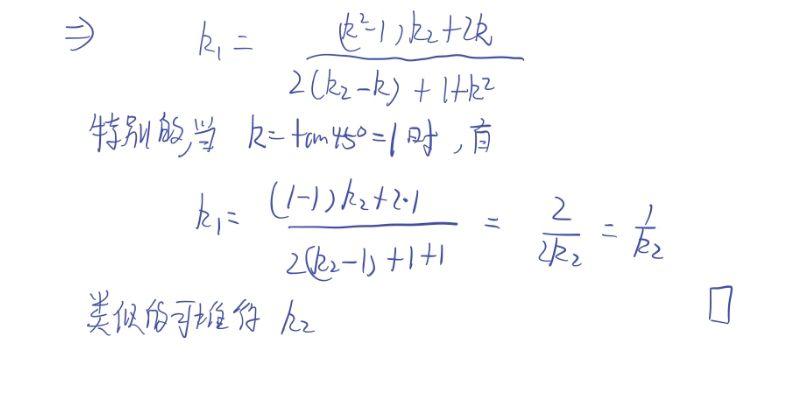 ⇒ k₁ = ((k²-1)k₂+2k)/(2(k₂-k)+1+k²)
特别的,当 k=tan45°=1时,有
k₁= ((1-1)k₂+2·1)/(2(k₂-1)+1+1) = 2/(2k₂) = 1/k₂
类似的可推得 k₂ □